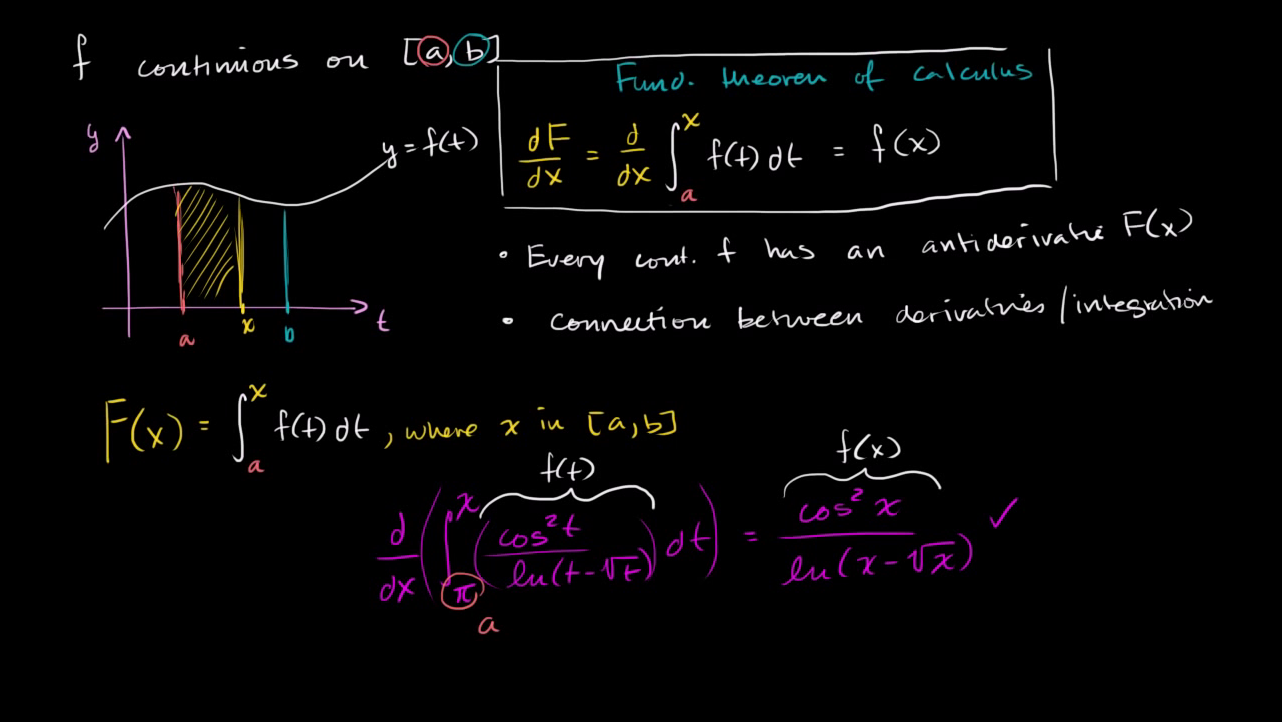 f continuous on [a, b]
Fund. theorem of calculus
dF/dx = d/dx ∫_a^x f(t) dt = f(x)
y
y = f(t)
a
x
b
t
• Every cont. f has an antiderivative F(x)
• connection between derivatives/integration
F(x) = ∫_a^x f(t) dt, where x in [a,b]
f(t)
f(x)
d/dx (∫_π^x (cos²t / ln(t-√t)) dt) = cos²x / ln(x-√x) ✓
a